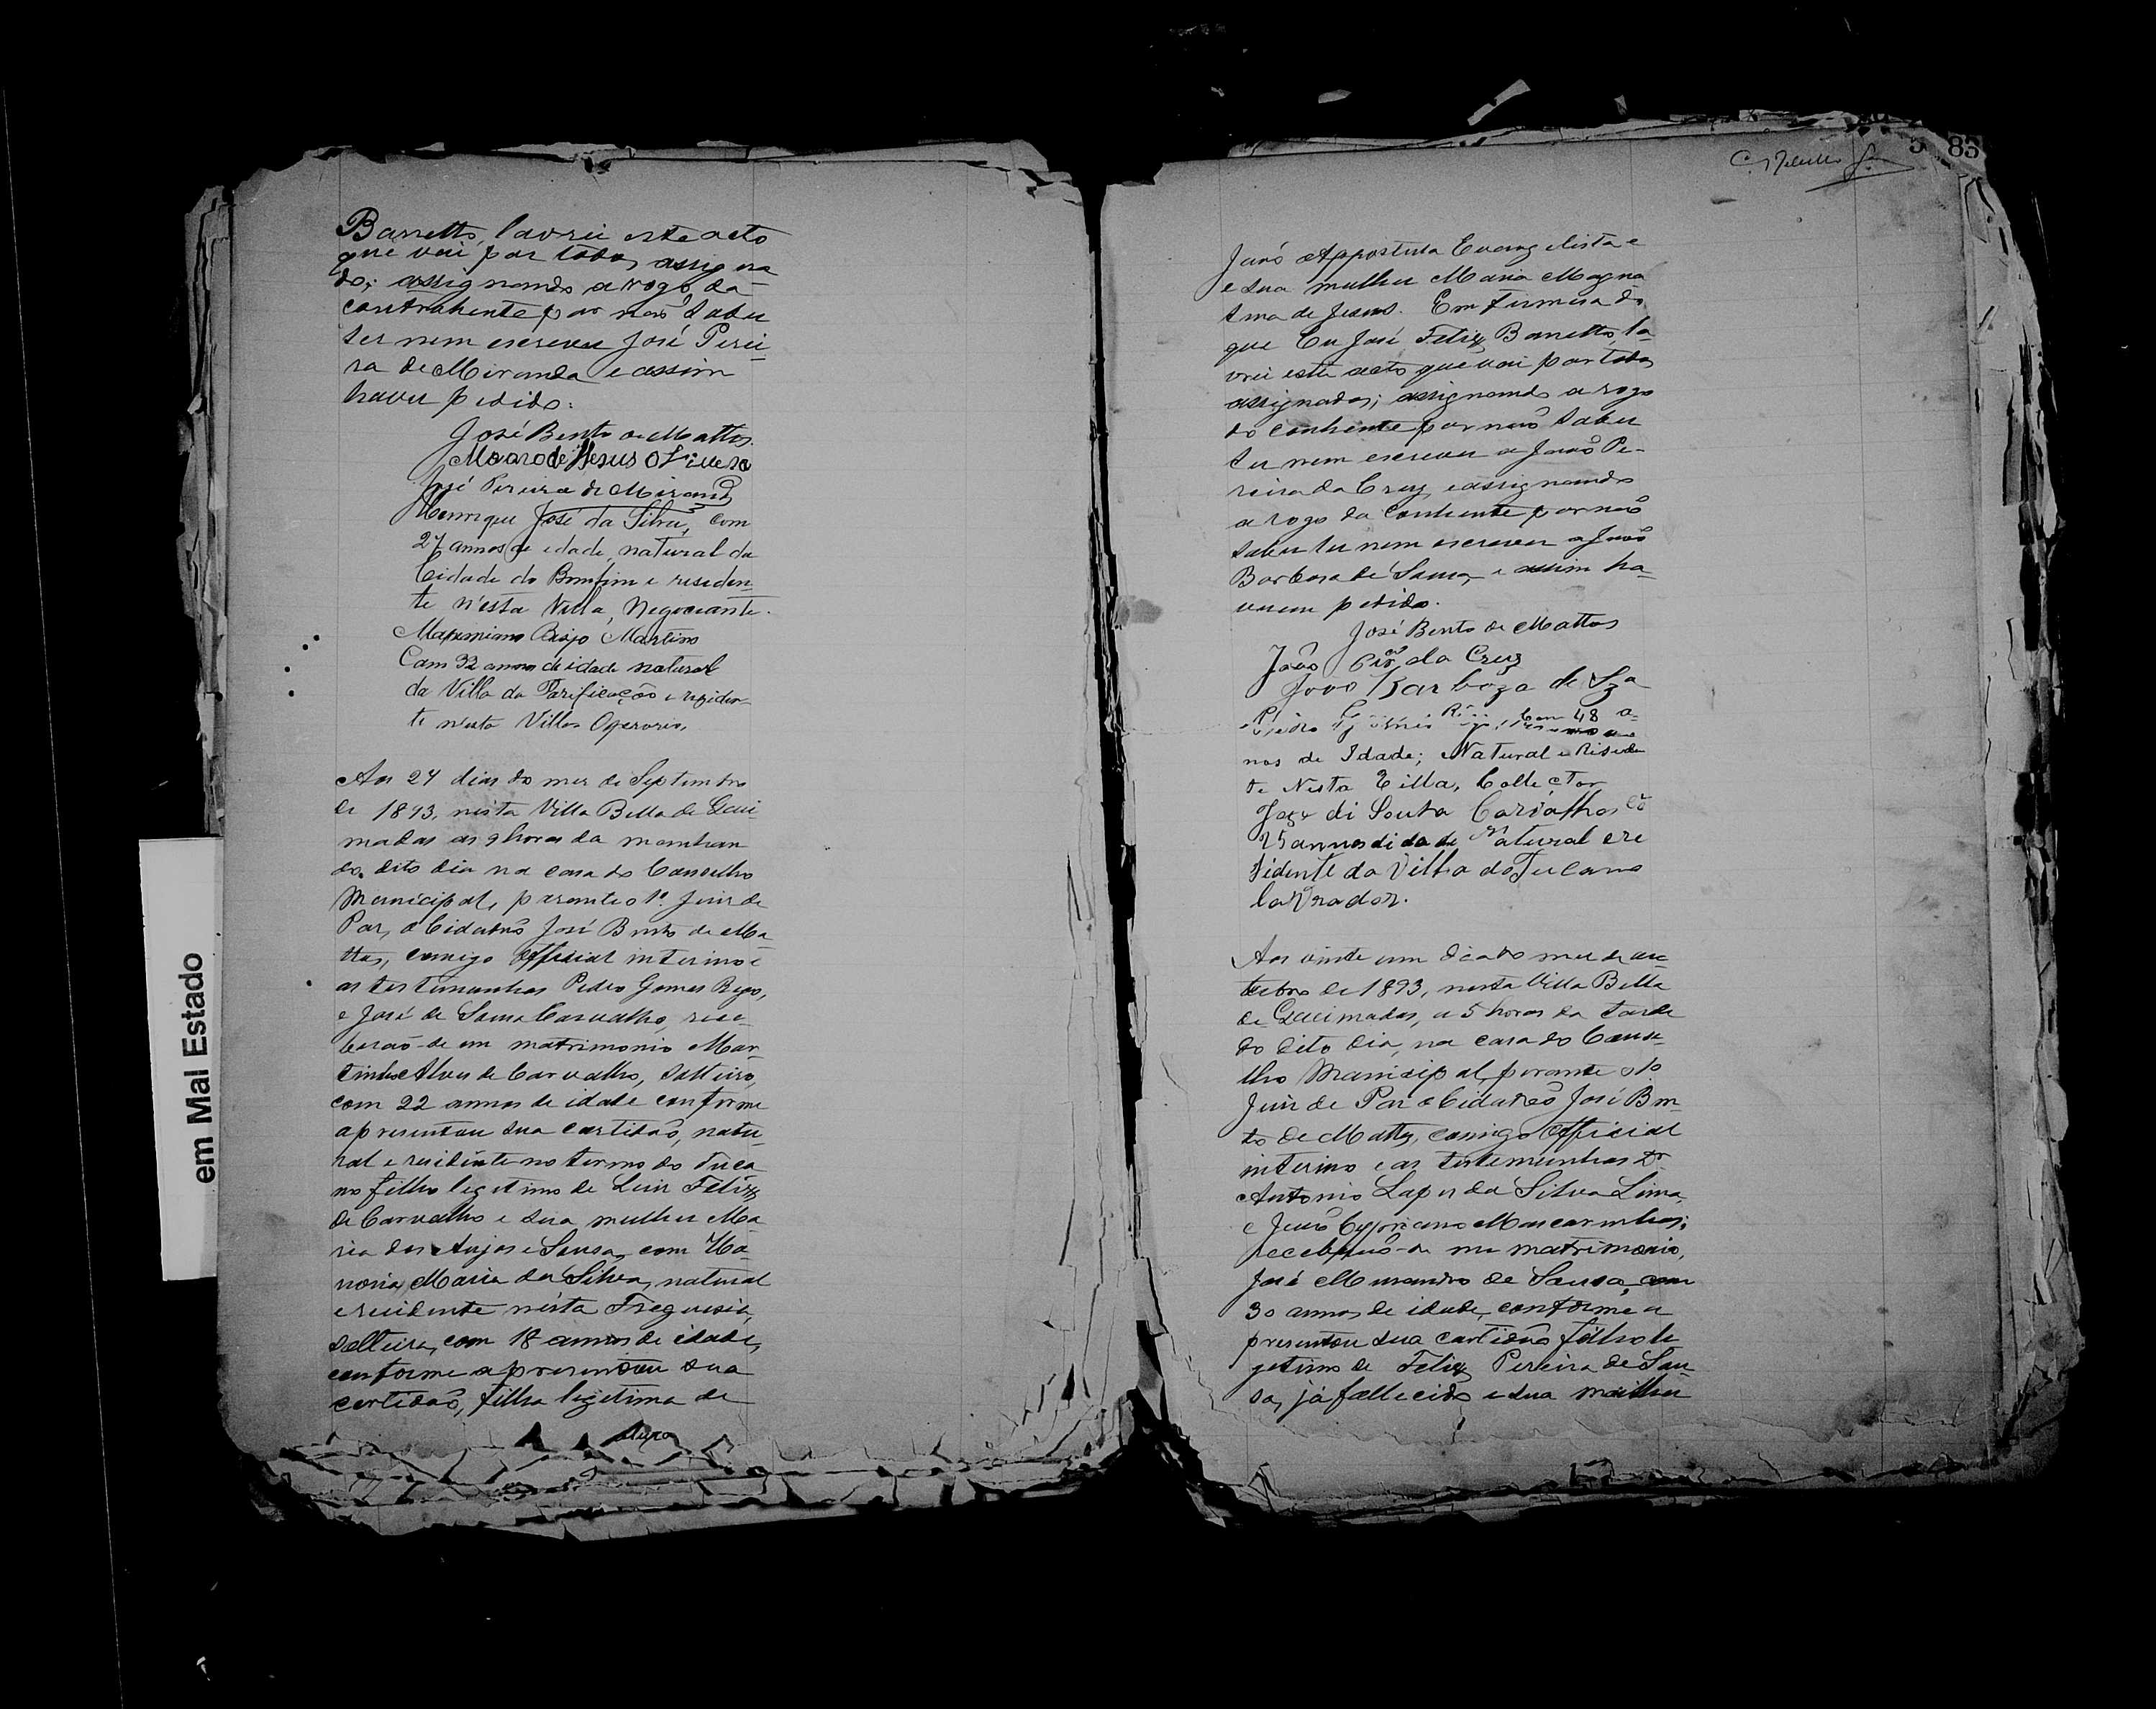 Barretto, lavrei este acto
que vai por todos assigna
do; assignando a rogo da
contrahente por naõ saber
ler nem escrever José Perei-
ra de Miranda e assim
haver pedido.
José Bento de Mattos.
de Jesus Oliveira
José Pereira de Mirand
Henrique José da Silva, com
27 annos de idade, natural da
Cidade do Bomfim e residen-
te n'esta Villa, Negociante.
Martins
Com 32 annos de idade natural
da Villa da Purificação e residen-
te nesta Villa Operario,
Aos 24 dias do mez de Septembro
de 1893, nesta Villa Bella de Quei
madas as 9 horas da manhan
do dito dia na casa do Conselho
Municipal, perante o 1º Juiz de
Paz, o Cidadaõ José Bento de Ma-
ttos, comigo Official interino e
as testimunhas Pedro Gomes Rego,
e José de Sousa Carvalho, rece-
beraõ-se em matrimonio Mar-
tinho Alves de Carvalho, solteiro,
com 22 annos de idade conforme
apresentou sua certidaõ, natu-
ral e residente no termo do Tuca
no filho legitimo de Luiz Felix
de Carvalho e sua mulher Ma-
ria dos Anjos e Sousa, com Ho
noria Maria da Silva, natural
e residente nésta Freguesia,
solteira, com 18 annos de idade,
conforme apresentou sua
certidaõ, filha legitima de
em Mal Estado
83
Joaõ Appostulo Evangelista e
e sua mulher Maria Magna
de Jesus. Em firmesa do
que Eu José Felix Barretto, la-
vrei este acto que vai por todos
assignados; assignando a rogo
do conhente por naõ saber
ler nem escrever a Joaõ Pe-
reira da Cruz, e assignando
a rogo da conhente por naõ
saber ler nem escrever a Joaõ
Barbosa de Sousa, e assim ha-
verem pedido.
José Bento de Mattos
João Pirª da Cruz
João Barboza de Sza
Pedro com 48 a-
nos de Idade; Natural e Reside
te Nesta Villa, Collector
di Souta Carvalho, cõ
25 annos di dade Natural e re
sidente da Villa do Tucano
lavrador.
Aos vinte um dia do mez de ou-
tubro de 1893, nesta Villa Bella
de Queimadas, as 5 horas da tarde
do dito dia, na casa do Conse-
lho Municipal, perante o 1o
Juiz de Paz o Cidadaõ José Ben-
to de Mattos, comigo Official
interino e as testemunhas Dr
Antonio Lopes da Silva Lima,
e Joaõ Cypriano Mascarenhas;
receberaõ-se em matrimonio,
José Menandro de Sousa, com
30 annos de idade, conforme a
presentou sua certidaõ filho le
gitimo de Felix Pereira de Sou-
sa, já fallecido e sua mulher